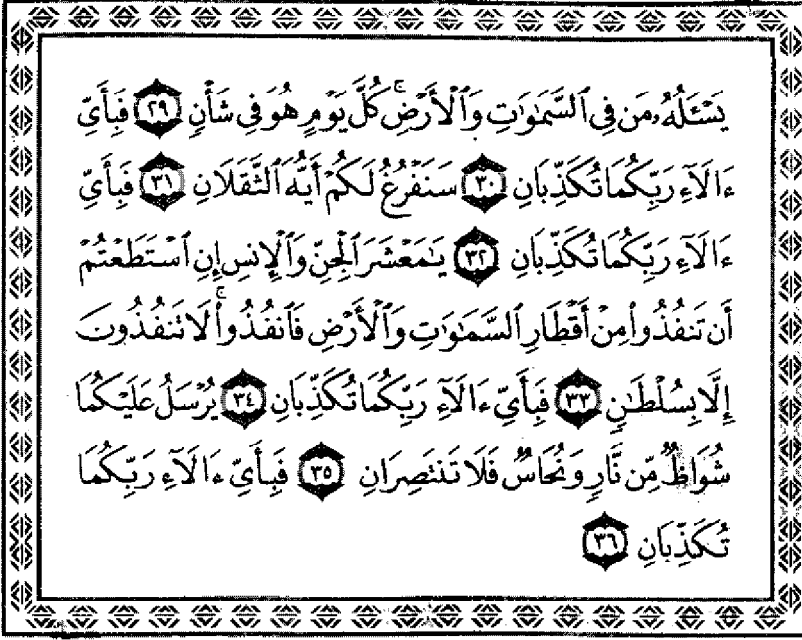 يَسْـَٔلُهُۥ مَن فِى ٱلسَّمَٰوَٰتِ وَٱلْأَرْضِ ۚ كُلَّ يَوْمٍ هُوَ فِى شَأْنٍ ٢٩ فَبِأَىِّ
ءَالَآءِ رَبِّكُمَا تُكَذِّبَانِ ٣٠ سَنَفْرُغُ لَكُمْ أَيُّهَ ٱلثَّقَلَانِ ٣١ فَبِأَىِّ
ءَالَآءِ رَبِّكُمَا تُكَذِّبَانِ ٣٢ يَٰمَعْشَرَ ٱلْجِنِّ وَٱلْإِنسِ إِنِ ٱسْتَطَعْتُمْ
أَن تَنفُذُوا۟ مِنْ أَقْطَارِ ٱلسَّمَٰوَٰتِ وَٱلْأَرْضِ فَٱنفُذُوا۟ ۚ لَا تَنفُذُونَ
إِلَّا بِسُلْطَٰنٍ ٣٣ فَبِأَىِّ ءَالَآءِ رَبِّكُمَا تُكَذِّبَانِ ٣٤ يُرْسَلُ عَلَيْكُمَا
شُوَاظٌ مِّن نَّارٍ وَنُحَاسٌ فَلَا تَنتَصِرَانِ ٣٥ فَبِأَىِّ ءَالَآءِ رَبِّكُمَا
تُكَذِّبَانِ ٣٦